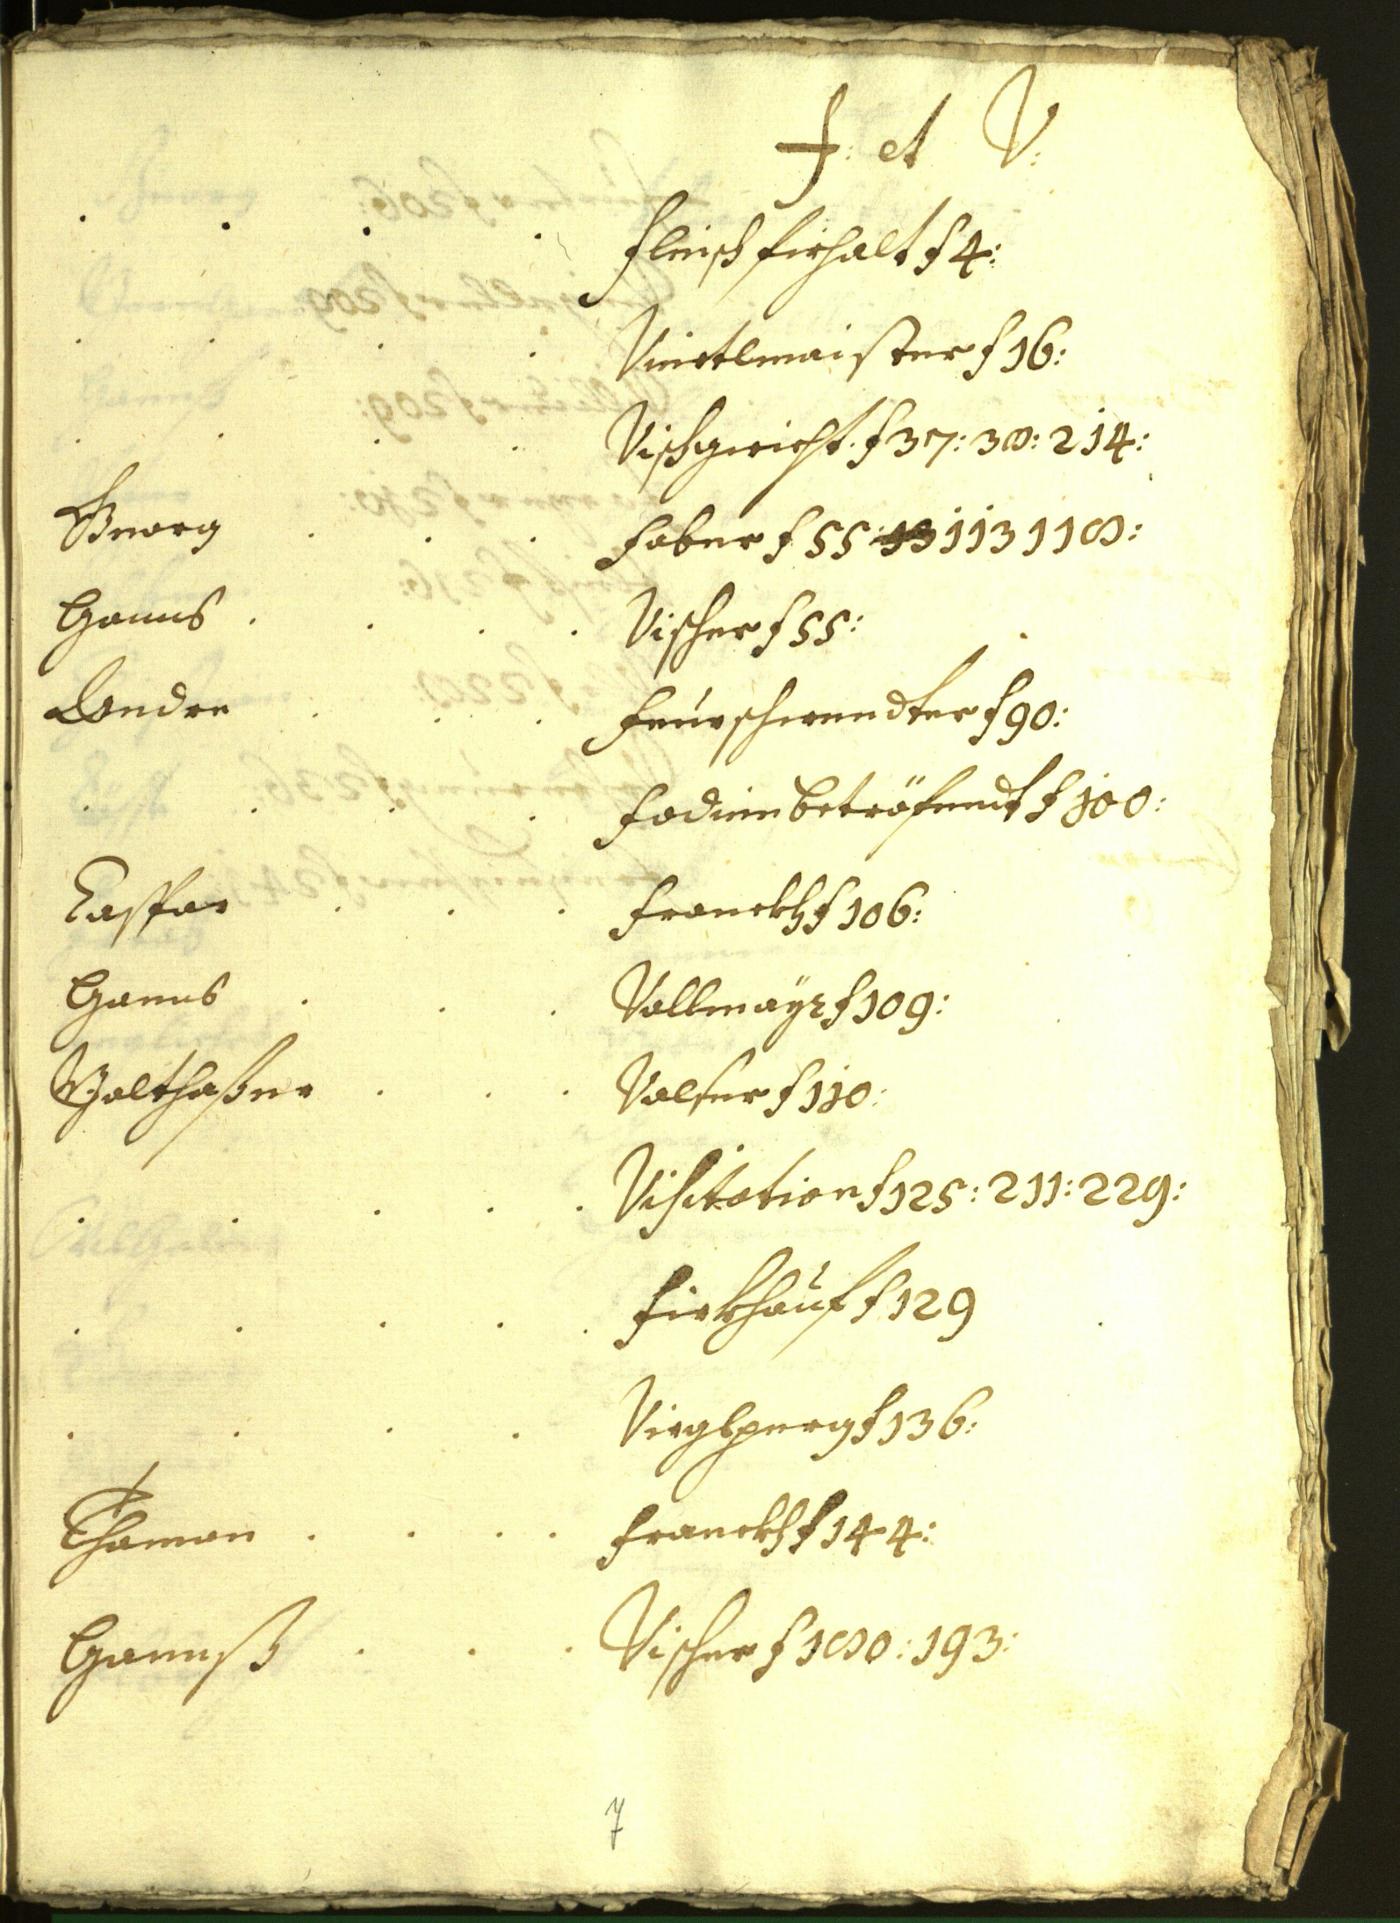 F: et V:
fleisch firhalt f 4:
Viertlmaister f 16:
Vischgericht. f 37: 38: 214:
Georg . . . faber f 55 113 118:
Hanns . . . . Vischer f 55:
Andre . . . feurschwendter f 90:
. . . . fadim betröfendt f 100:
Caspar . . . franckh f 106:
Hanns . . . Vallmayr f 109:
Walthaßer . . . Valser f 110:
. . . . . Visitation f 125: 211: 229:
. . . . . firkhauf f 129
. . . . Virglperg f 136:
Thaman . . . . franckh f 144:
Hannß . . . Vischer f 180: 193:
7